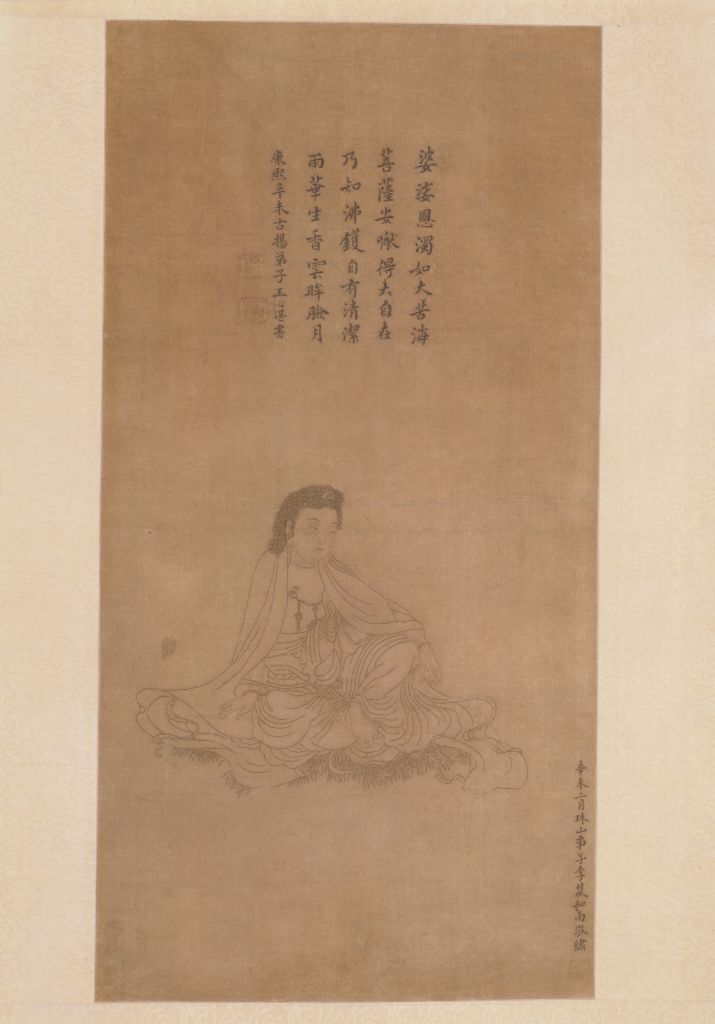 婆娑恩濁如大苦海
菩薩安得大自在
乃知沸鑊自有清潔
雨華生香雲眸臉月
康熙辛未古揚弟子王心湛書
辛未二月珠山弟子李和南繡